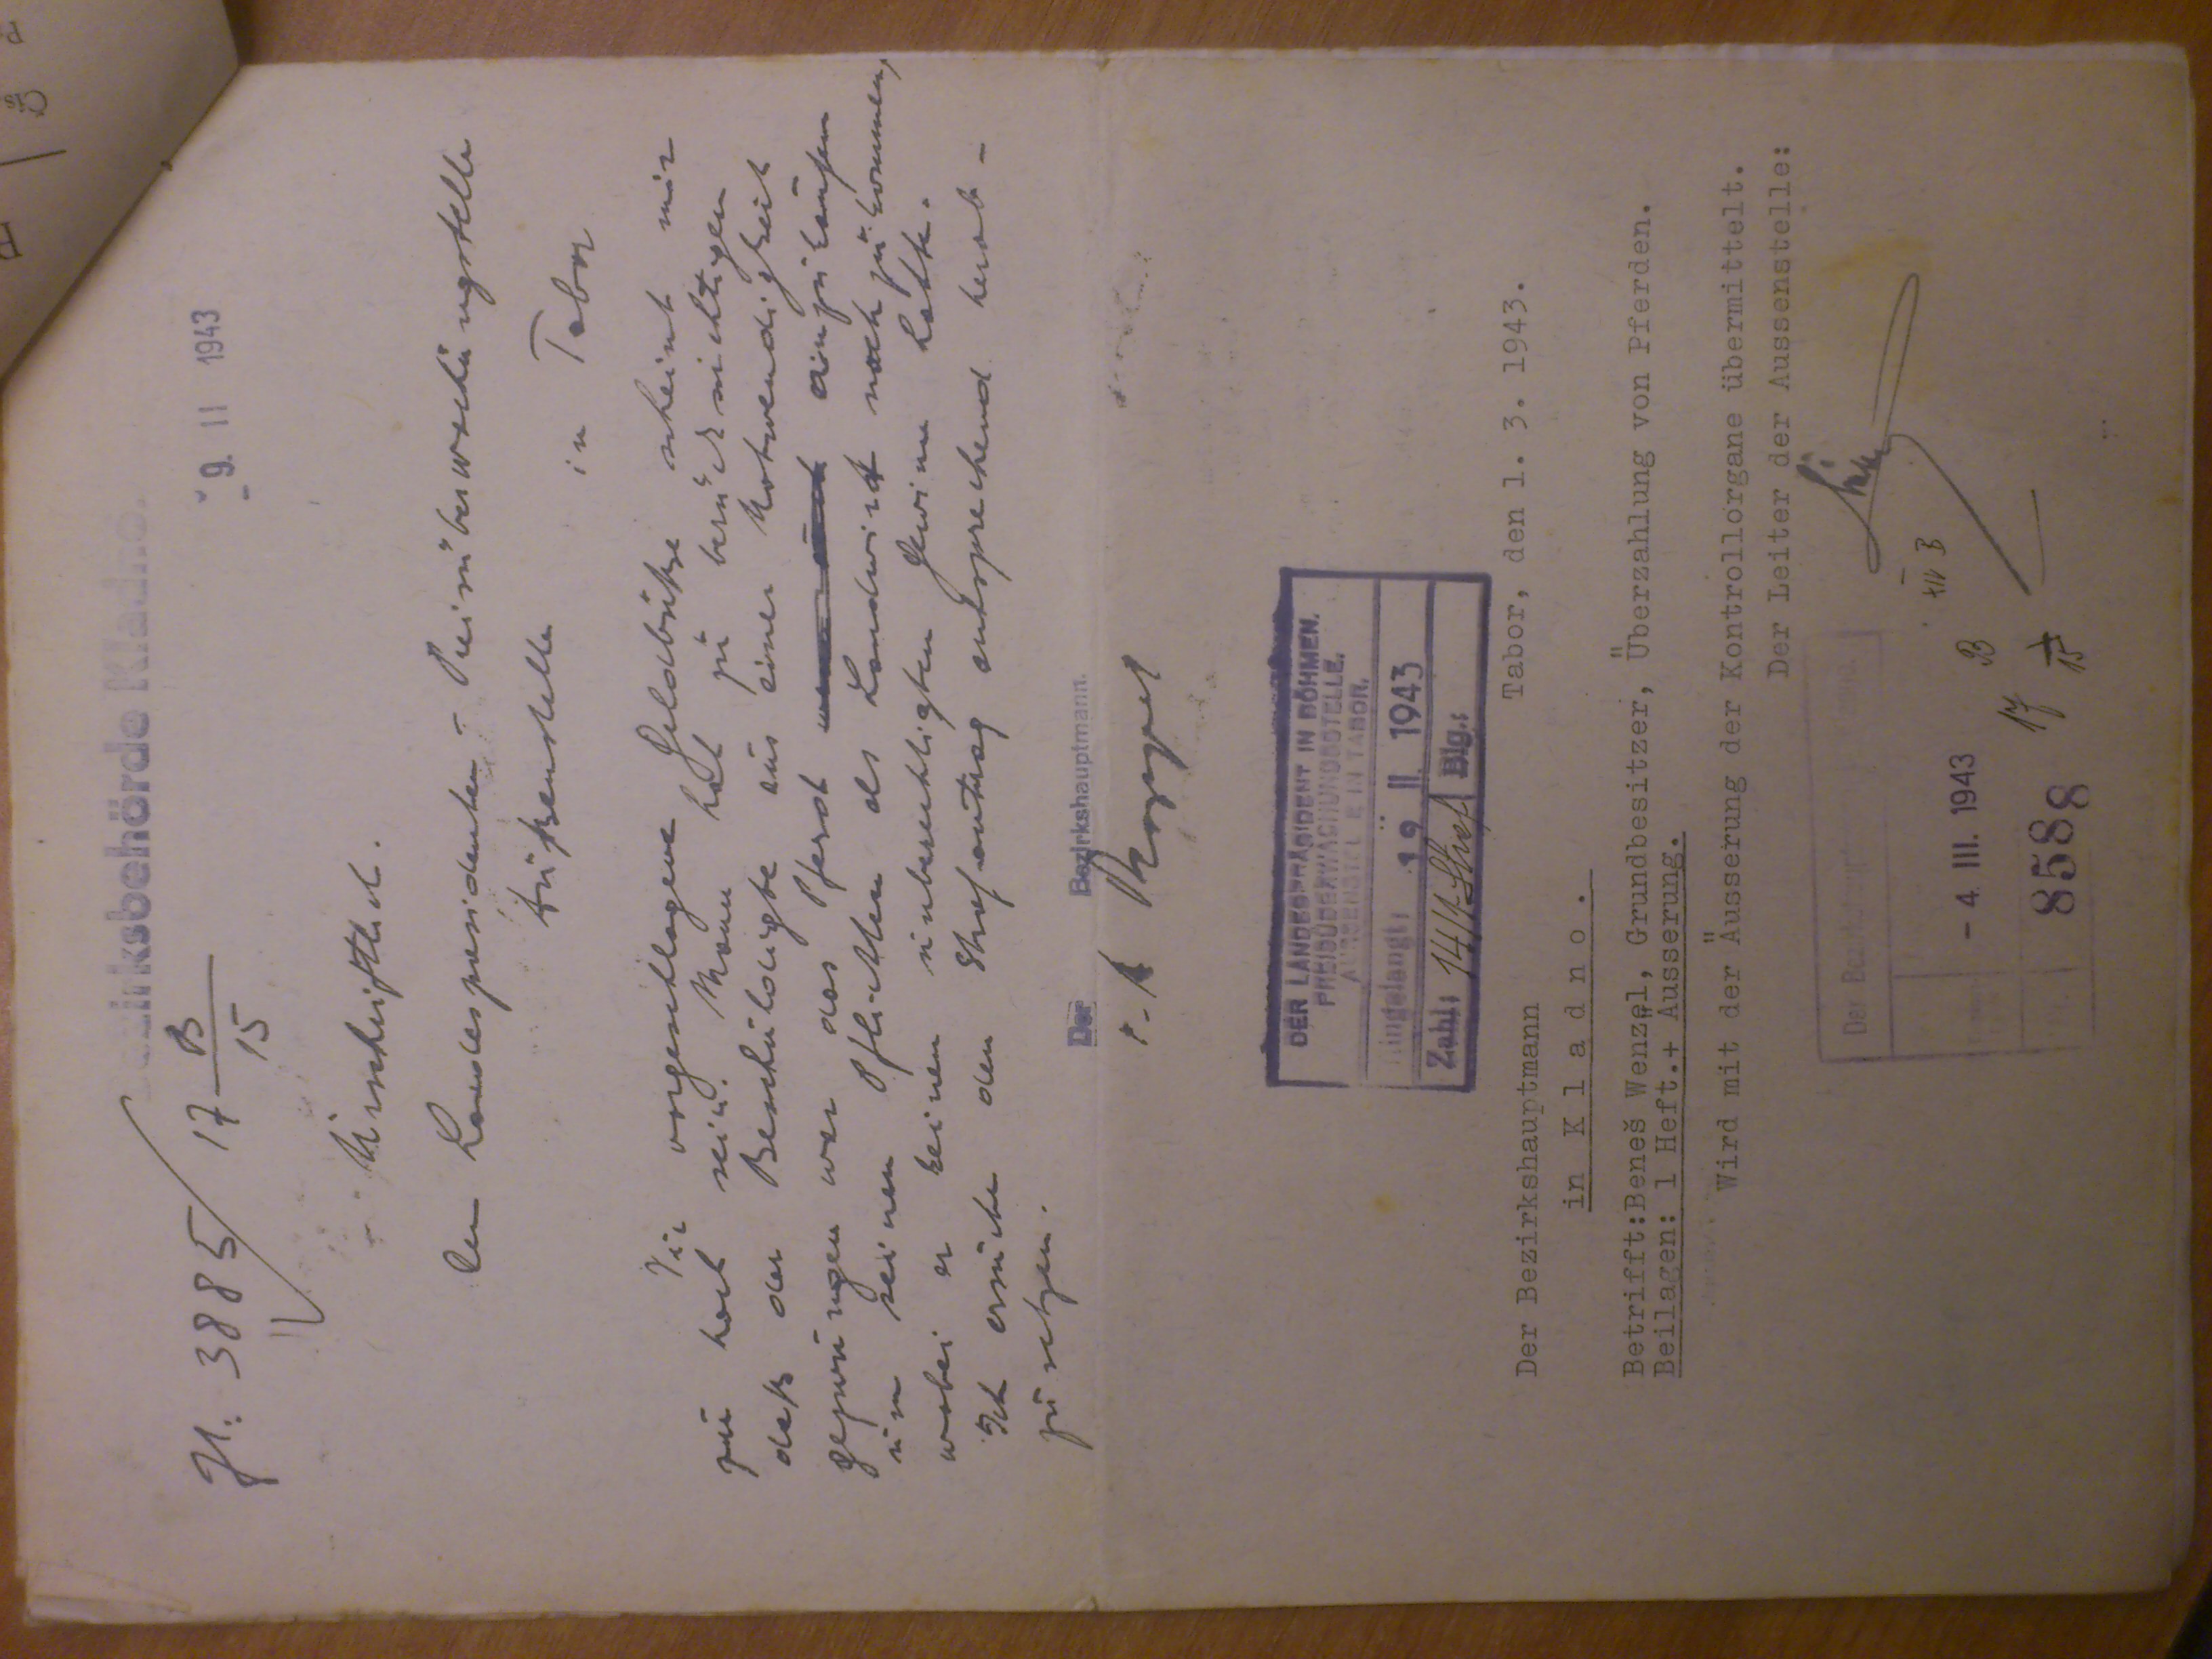 Bezirksbehörde Kladno.
Zl. 3885/ 17 B/15
- 9. II 1943
Urschriftlich.
Dem Landespräsidenten - Preisüberwachungstelle
Außenstelle
in Tabor
Die vorgeschlagene Geldbuße scheint mir
zu hoch sein. Mann hat zu berücksichtigen
daß der Beschuldigte aus einer Notwendigkeit
gezwungen war das Pferd einzukaufen
um seinen Pflichten als Landwirt nach zu kommen,
wobei er keinen unberechtigten Gewinn hatte.
Ich ersuche den Strafantrag entsprechend herab-
zusetzen.
Der Bezirkshauptmann.
DER LANDESPRÄSIDENT IN BÖHMEN.
PREISÜBERWACHUNGSSTELLE.
AUSSENSTELLE IN TABOR.
Eingelangt: 19 II. 1943
Zahl: 14/1-Straf Blg.:
Tabor, den 1. 3. 1943.
Der Bezirkshauptmann
in Kladno.
Betrifft:Beneš Wenzel, Grundbesitzer, Überzahlung von Pferden.
Beilagen: 1 Heft.+ Äusserung.
Wird mit der Äusserung der Kontrollorgane übermittelt.
Der Leiter der Aussenstelle:
Der Bezirkshauptmann
XIV B
- 4. III. 1943
17 B/15
8588